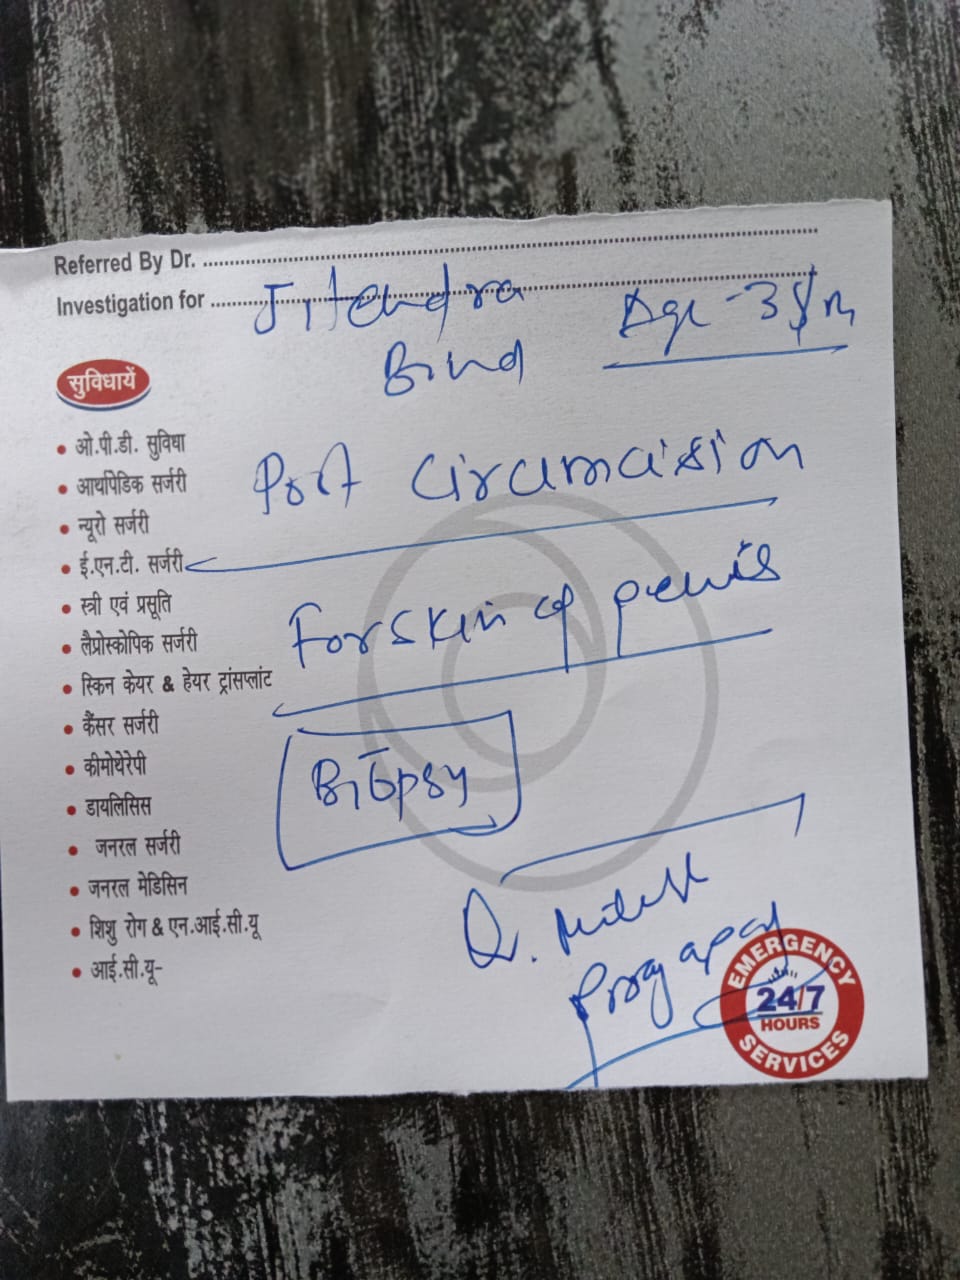 Referred By Dr. ........................................
Investigation for ........................................
Jitendra
Bind
Age - 35/m
सुविधायें
• ओ.पी.डी. सुविधा
• आर्थोपेडिक सर्जरी
• न्यूरो सर्जरी
• ई.एन.टी. सर्जरी
• स्त्री एवं प्रसूति
• लैप्रोस्कोपिक सर्जरी
• स्किन केयर & हेयर ट्रांसप्लांट
• कैंसर सर्जरी
• कीमोथेरेपी
• डायलिसिस
• जनरल सर्जरी
• जनरल मेडिसिन
• शिशु रोग & एन.आई.सी.यू
• आई.सी.यू-
Post circumcision
Forskin of penis
Biopsy
Dr.
EMERGENCY
24/7
HOURS
SERVICES